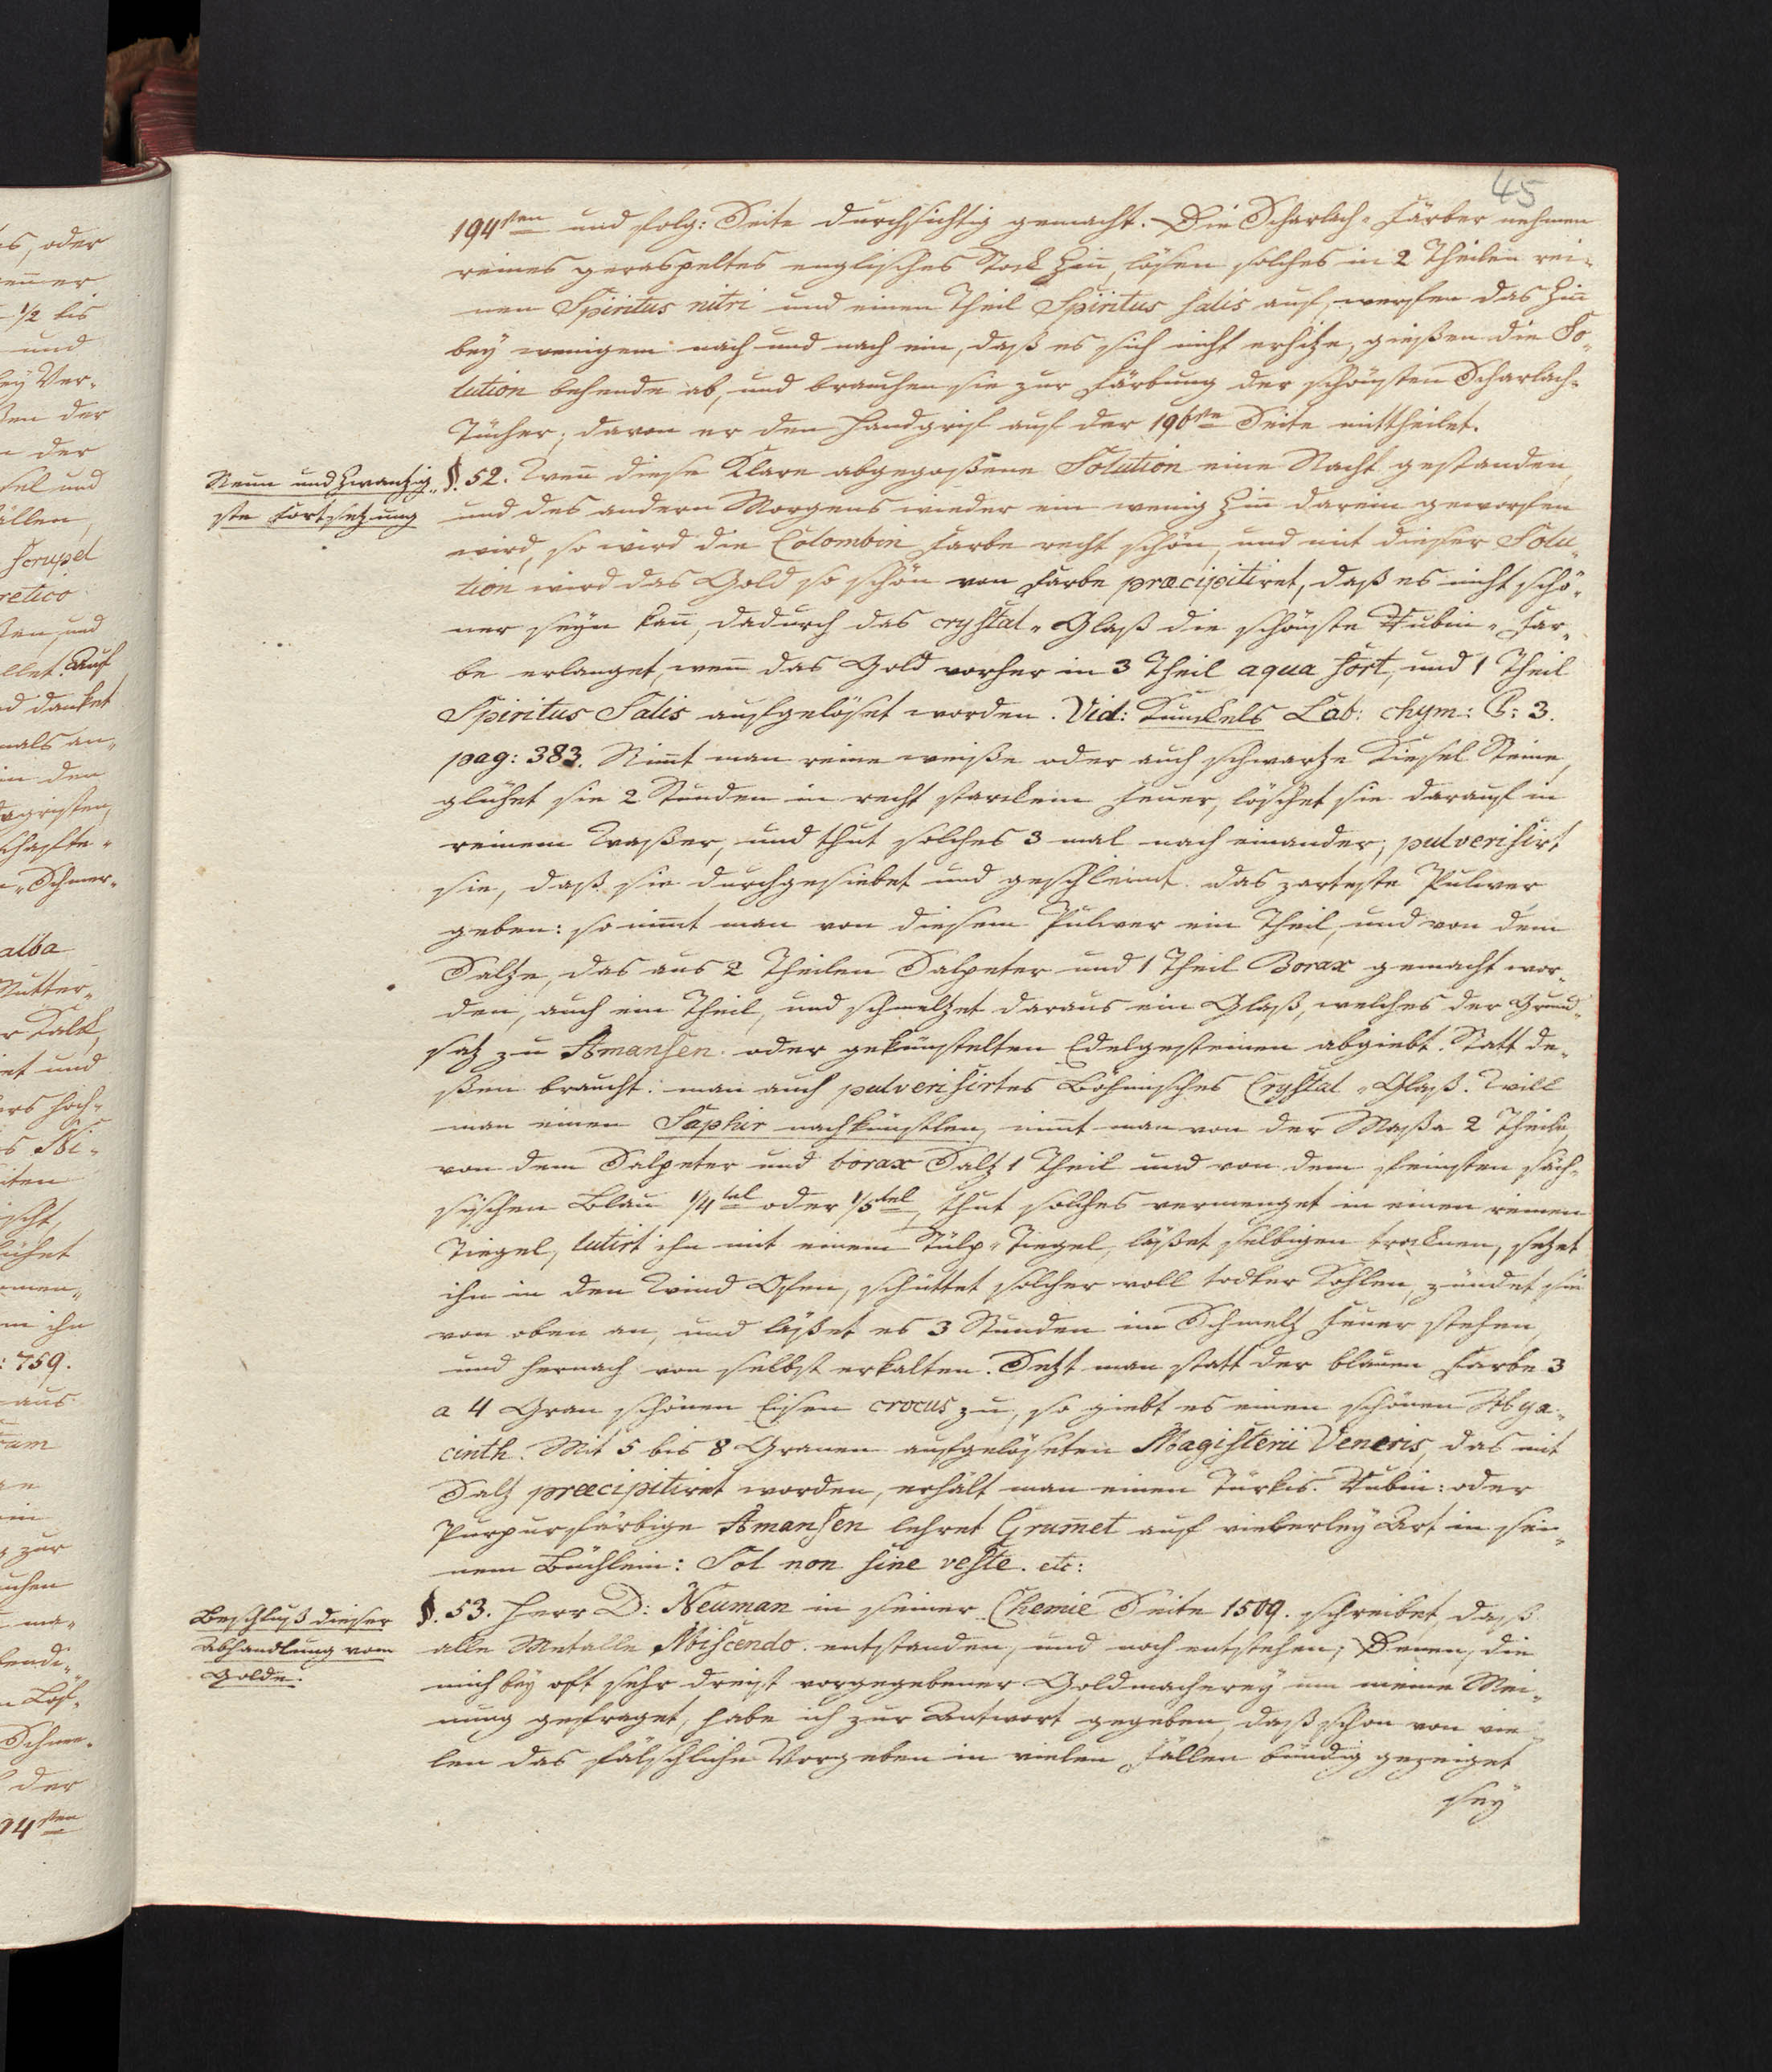 45
194sten und folg: Seite durchsichtig gemacht. Die Scharlach-Färber nehmen
reines geraspeltes englisches Stock Zin̄, lösen solches in 2 Theilen rei-
nen Spiritus nitri und einen Theil Spiritus salis auf, werfen das Zin̄
bey wenigem nach und nach ein, daß es sich nicht erhitze, gießen die So-
lution behende ab, und brauchen sie zur Färbung der schönsten Scharlach-
Tücher; davon er den Handgrif auf der 196ste Seite mittheilet.
Neun und Zwantzig-
ste Fortsetzung
§. 52. Wen̄ diese Klare abgegoßene Solution eine Nacht gestanden,
und des andern Morgens wieder ein wenig Zin̄ darein geworfen
wird, so wird die Colombin Farbe recht schön, und mit dieser Solu-
tion wird das Gold so schön von Farbe præcipitiret, daß es nicht schö-
ner seyn kan̄, dadurch das crystal-Glaß die schönste Rubin-Far-
be erlanget, wen̄ das Gold vorher in 3 Theil aqua fort, und 1 Theil
Spiritus Salis aufgelöset worden. Vid: Kunckels Lab: chym: C: 3.
pag: 383. Nim̄t man reine weiße oder auch schwartze Kiesel Steine,
glühet sie 2 Stunden in recht starckem Feuer, löschet sie darauf in
reinem Waßer, und thut solches 3 mal nach einander; pulverisirt
sie, daß sie durchgesiebet und geschleimt das zarteste Pulver
geben: so nim̄t man von diesem Pulver ein Theil, und von dem
Saltze, das aus 2 Theilen Salpeter und 1 Theil Borax gemacht wor-
den, auch ein Theil, und schmeltzet daraus ein Glaß, welches der Grund-
satz zu Amausen oder gekünstelten Edelgesteinen abgiebt. Statt de-
ßen braucht man auch pulverisirtes Böhmisches Crystal-Glaß. Will
man einen Saphir nachkünstlen, nim̄t man von der Maßa 2 Theile,
von dem Salpeter und borax Saltz 1 Theil und von dem feinsten säch-
sischen Blau 1/4tel oder 1/5tel, thut solches vermenget in einen reinen
Tiegel, lutirt ihn mit einem Stülp-Tiegel, läßet selbigen trocknen, setzet
ihn in den Wind Ofen, schüttet solcher voll todter Kohlen, zündet sie
von oben an, und läßet es 3 Stunden im Schmeltz Feuer stehen,
und hernach von selbst erkalten. Setzt man statt der blauen Farbe 3
a 4 Gran schönen Eisen crocus zu, so giebt es einen schönen Hya-
cinth. Mit 5 bis 8 Granen aufgelöseten Magisterii Veneris, das mit
Saltz præcipitiret worden, erhält man einen Türkis. Rubin: oder
Purpurfärbige Amausen lehret Grum̄et auf vielerley Art in sei-
nem Büchlein: Sol non sine veste. etc:
Beschluß dieser
Abhandlung vom
Golde.
§. 53. Herr D: Neuman in seiner Chemie Seite 1509. schreibet, daß
alle Metalle Miscendo entstanden, und noch entstehen; Denen, die
mich bey oft sehr dreist vorgegebener Goldmacherey um meine Mei-
nung gefraget, habe ich zur Antwort gegeben, daß schon von vie-
len das fälschliche Vorgeben in vielen Fällen bündig gezeiget
sey